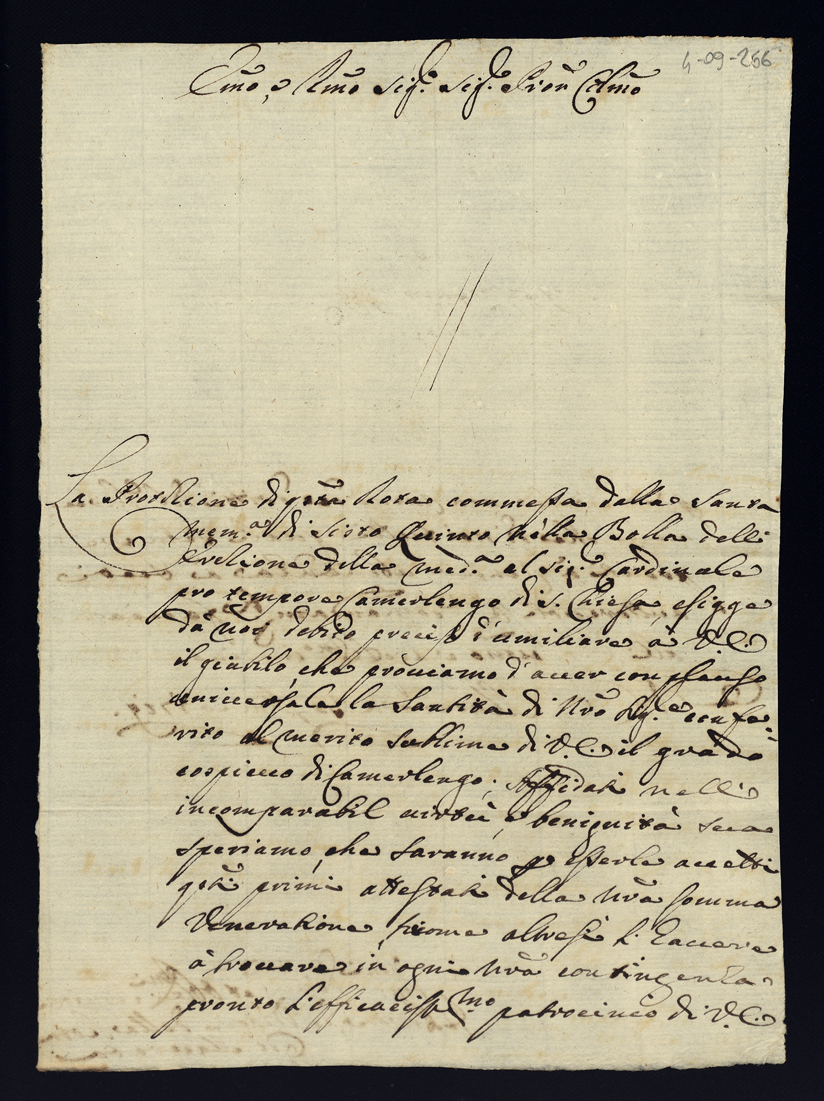 4-09-256
Emo, e Rmo Sig.r Sig.r Pron Colmo
La Protezione di qsta Rota commessa dalla Santa
mem.a di Sisto Quinto nella Bolla dell'
Erezione della med.a al Sig.r Cardinale
pro tempore Camerlengo di S. Chiesa, esigge
dà noi debito preciso d'umiliare à V.E.
il giubilo, che proviamo d'aver con plauso
universale la Santità di Nro Sig.re confe-
rito al merito sublime di V.E. il grado
cospicuo di Camerlengo. Affidati nell'
incomparabil virtù, e benignità sua
speriamo, che saranno p esserle accetti
qsti primi attestati della nrà somma
Venerazione, sicome altresì l'
à trovare in ogni nrà contingenza
pronto l'efficacissmo patrocinio di V.E.